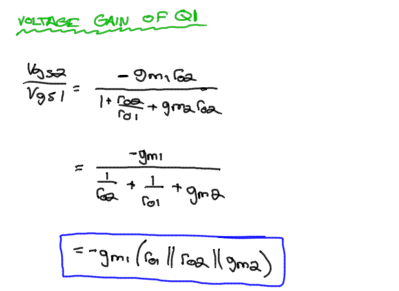 VOLTAGE GAIN OF Q1
Vgs2 / Vgs1 = -gm1 ro2 / (1 + ro2/ro1 + gm2 ro2)
= -gm1 / (1/ro2 + 1/ro1 + gm2)
= -gm1 (ro1 || ro2 || gm2)